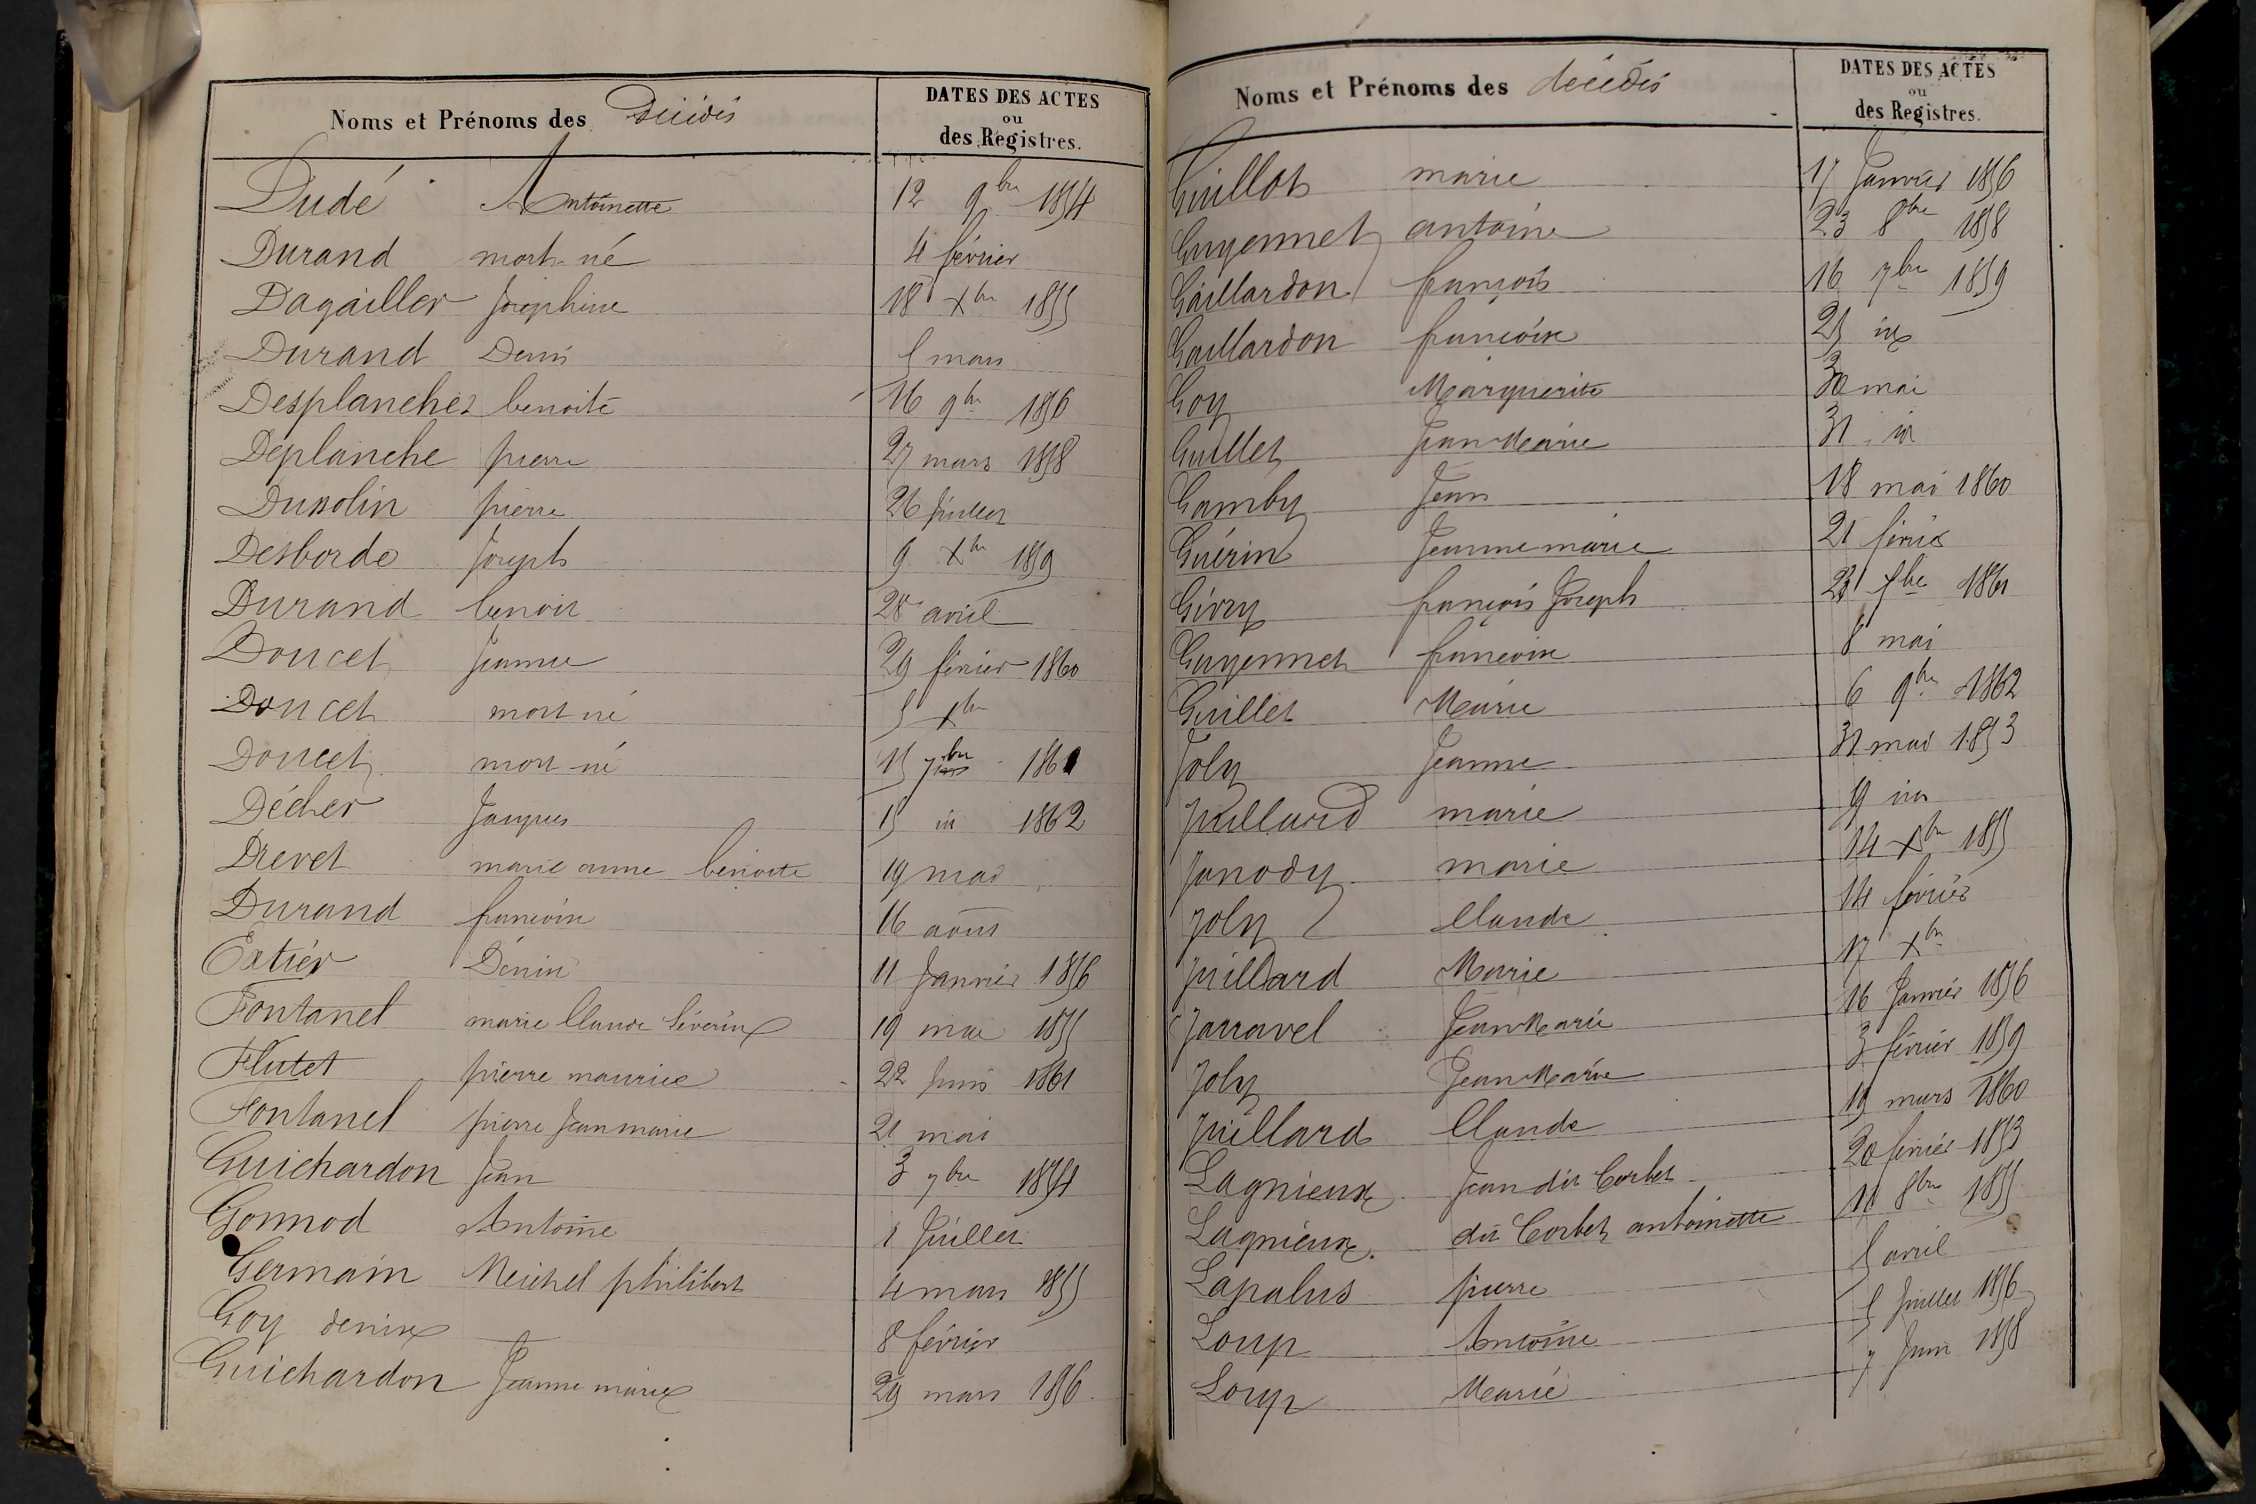 Noms et Prénoms des Décédés DATES DES ACTES
ou
des Registres.
Dudé Antoinette 12 9bre 1854
Durand mort né 4 février
Dagailler Josephine 18 Xbre 1855
Durand Denis 5 mars
Desplanches benoite 16 9bre 1856
Deplanche pierre 27 mars 1858
Dussolin pierre 26 juillet
Desborde Joseph 9 Xbre 1859
Durand benoit 28 avril
Doucet Jeanne 29 février 1860
Doucet mort né 5 Xbre
Doucet mort né 15 7bre 1861
Décher Jacques 15 id 1862
Drevet marie anne benoite 19 mai
Durand francoise 16 août
Extier Dénise 11 Janvier 1856
Fontanel marie Claude Séverine 19 mai 1855
Flutet pierre maurice 22 juin 1861
Fontanel pierre Jean marie 21 mai
Guichardon Jean 3 7bre 1854
Gonnod Antoine 1 Juillet
Germain Meichel philibert 4 mars 1855
Goy denise 8 février
Guichardon Jeanne marie 29 mars 1856
Noms et Prénoms des décédés DATES DES ACTES
ou
des Registres.
Guillot marie 17 Janvier 1856
Guyennet antoine 23 8bre 1858
Gaillardon françois 16 7bre 1859
Gaillardon francoise 25 id
Goy Marguerite 30 mai
Guillet Jean Marie 31 id
Gamby Jean 18 mai 1860
Guérin Jeanne marie 21 février
Givry françois Joseph 23 7bre 1861
Guyennet francoise 8 mai
Guillet Marie 6 9bre 1862
Joly Jeanne 31 mai 1853
Juillard marie 9 id
Janody marie 14 Xbre 1855
Joly Claude 14 février
Juillard Marie 17 Xbre
Jarravel Jean Marie 16 Janvier 1856
Joly Jean Marie 3 février 1859
Juillard Claude 19 mars 1860
Lagnieux Jean dit Corbet 20 février 1853
Lagnieux. dit Corbet antoinette 11 8bre 1855
Lapalus pierre 5 avril
Loup Antoine 5 Juillet 1856
Loup Marie 7 Juin 1858